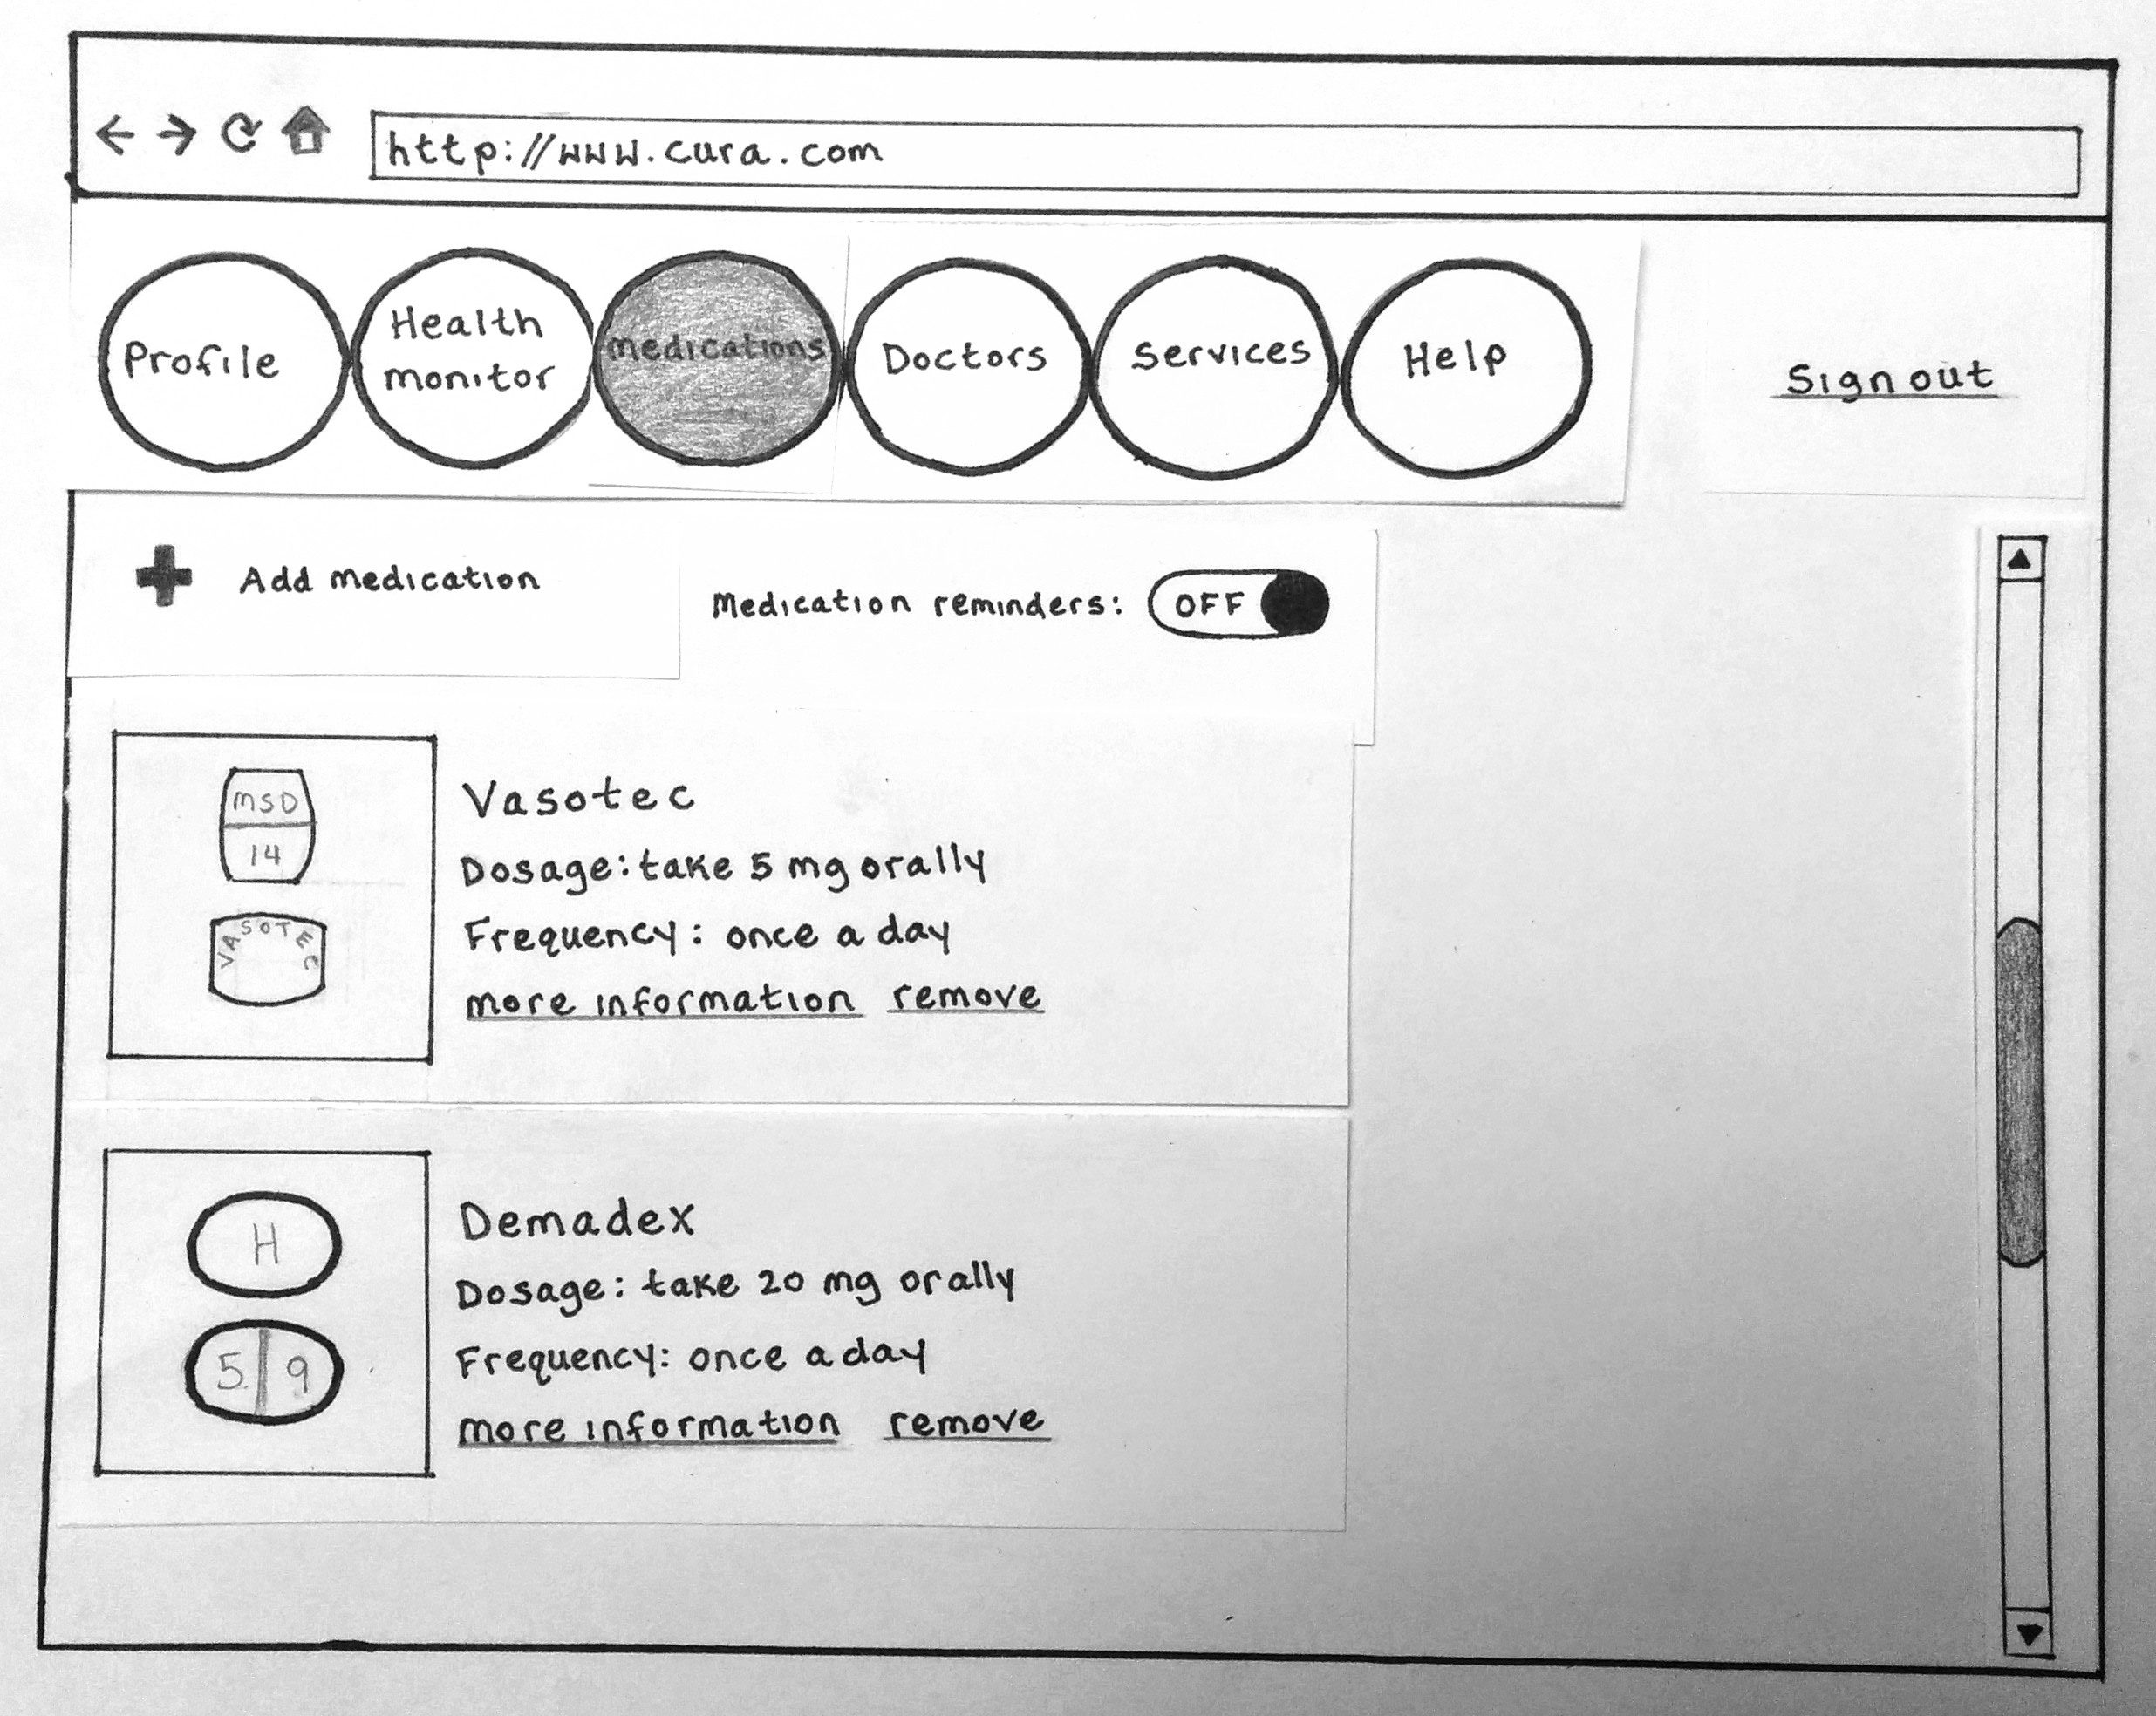 http://www.cura.com
Profile
Health
monitor
medications
Doctors
Services
Help
Sign out
Add medication
Medication reminders: OFF
MSD
14
VASOTEC
Vasotec
Dosage: take 5 mg orally
Frequency: once a day
more information remove
H
5 9
Demadex
Dosage: take 20 mg orally
Frequency: once a day
more information remove